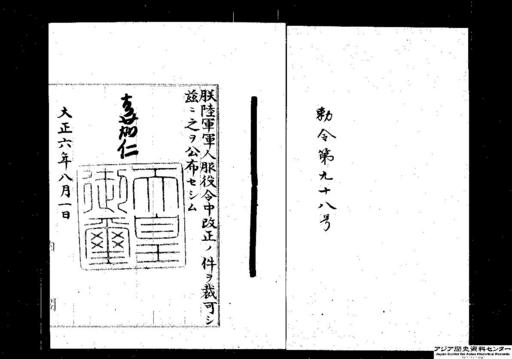 勅令第九十八号
朕陸軍軍人服役令中改正ノ件ヲ裁可シ
茲ニ之ヲ公布セシム
嘉仁
天皇
御璽
大正六年八月一日
アジア歴史資料センター
Japan Center for Asian Historical Records